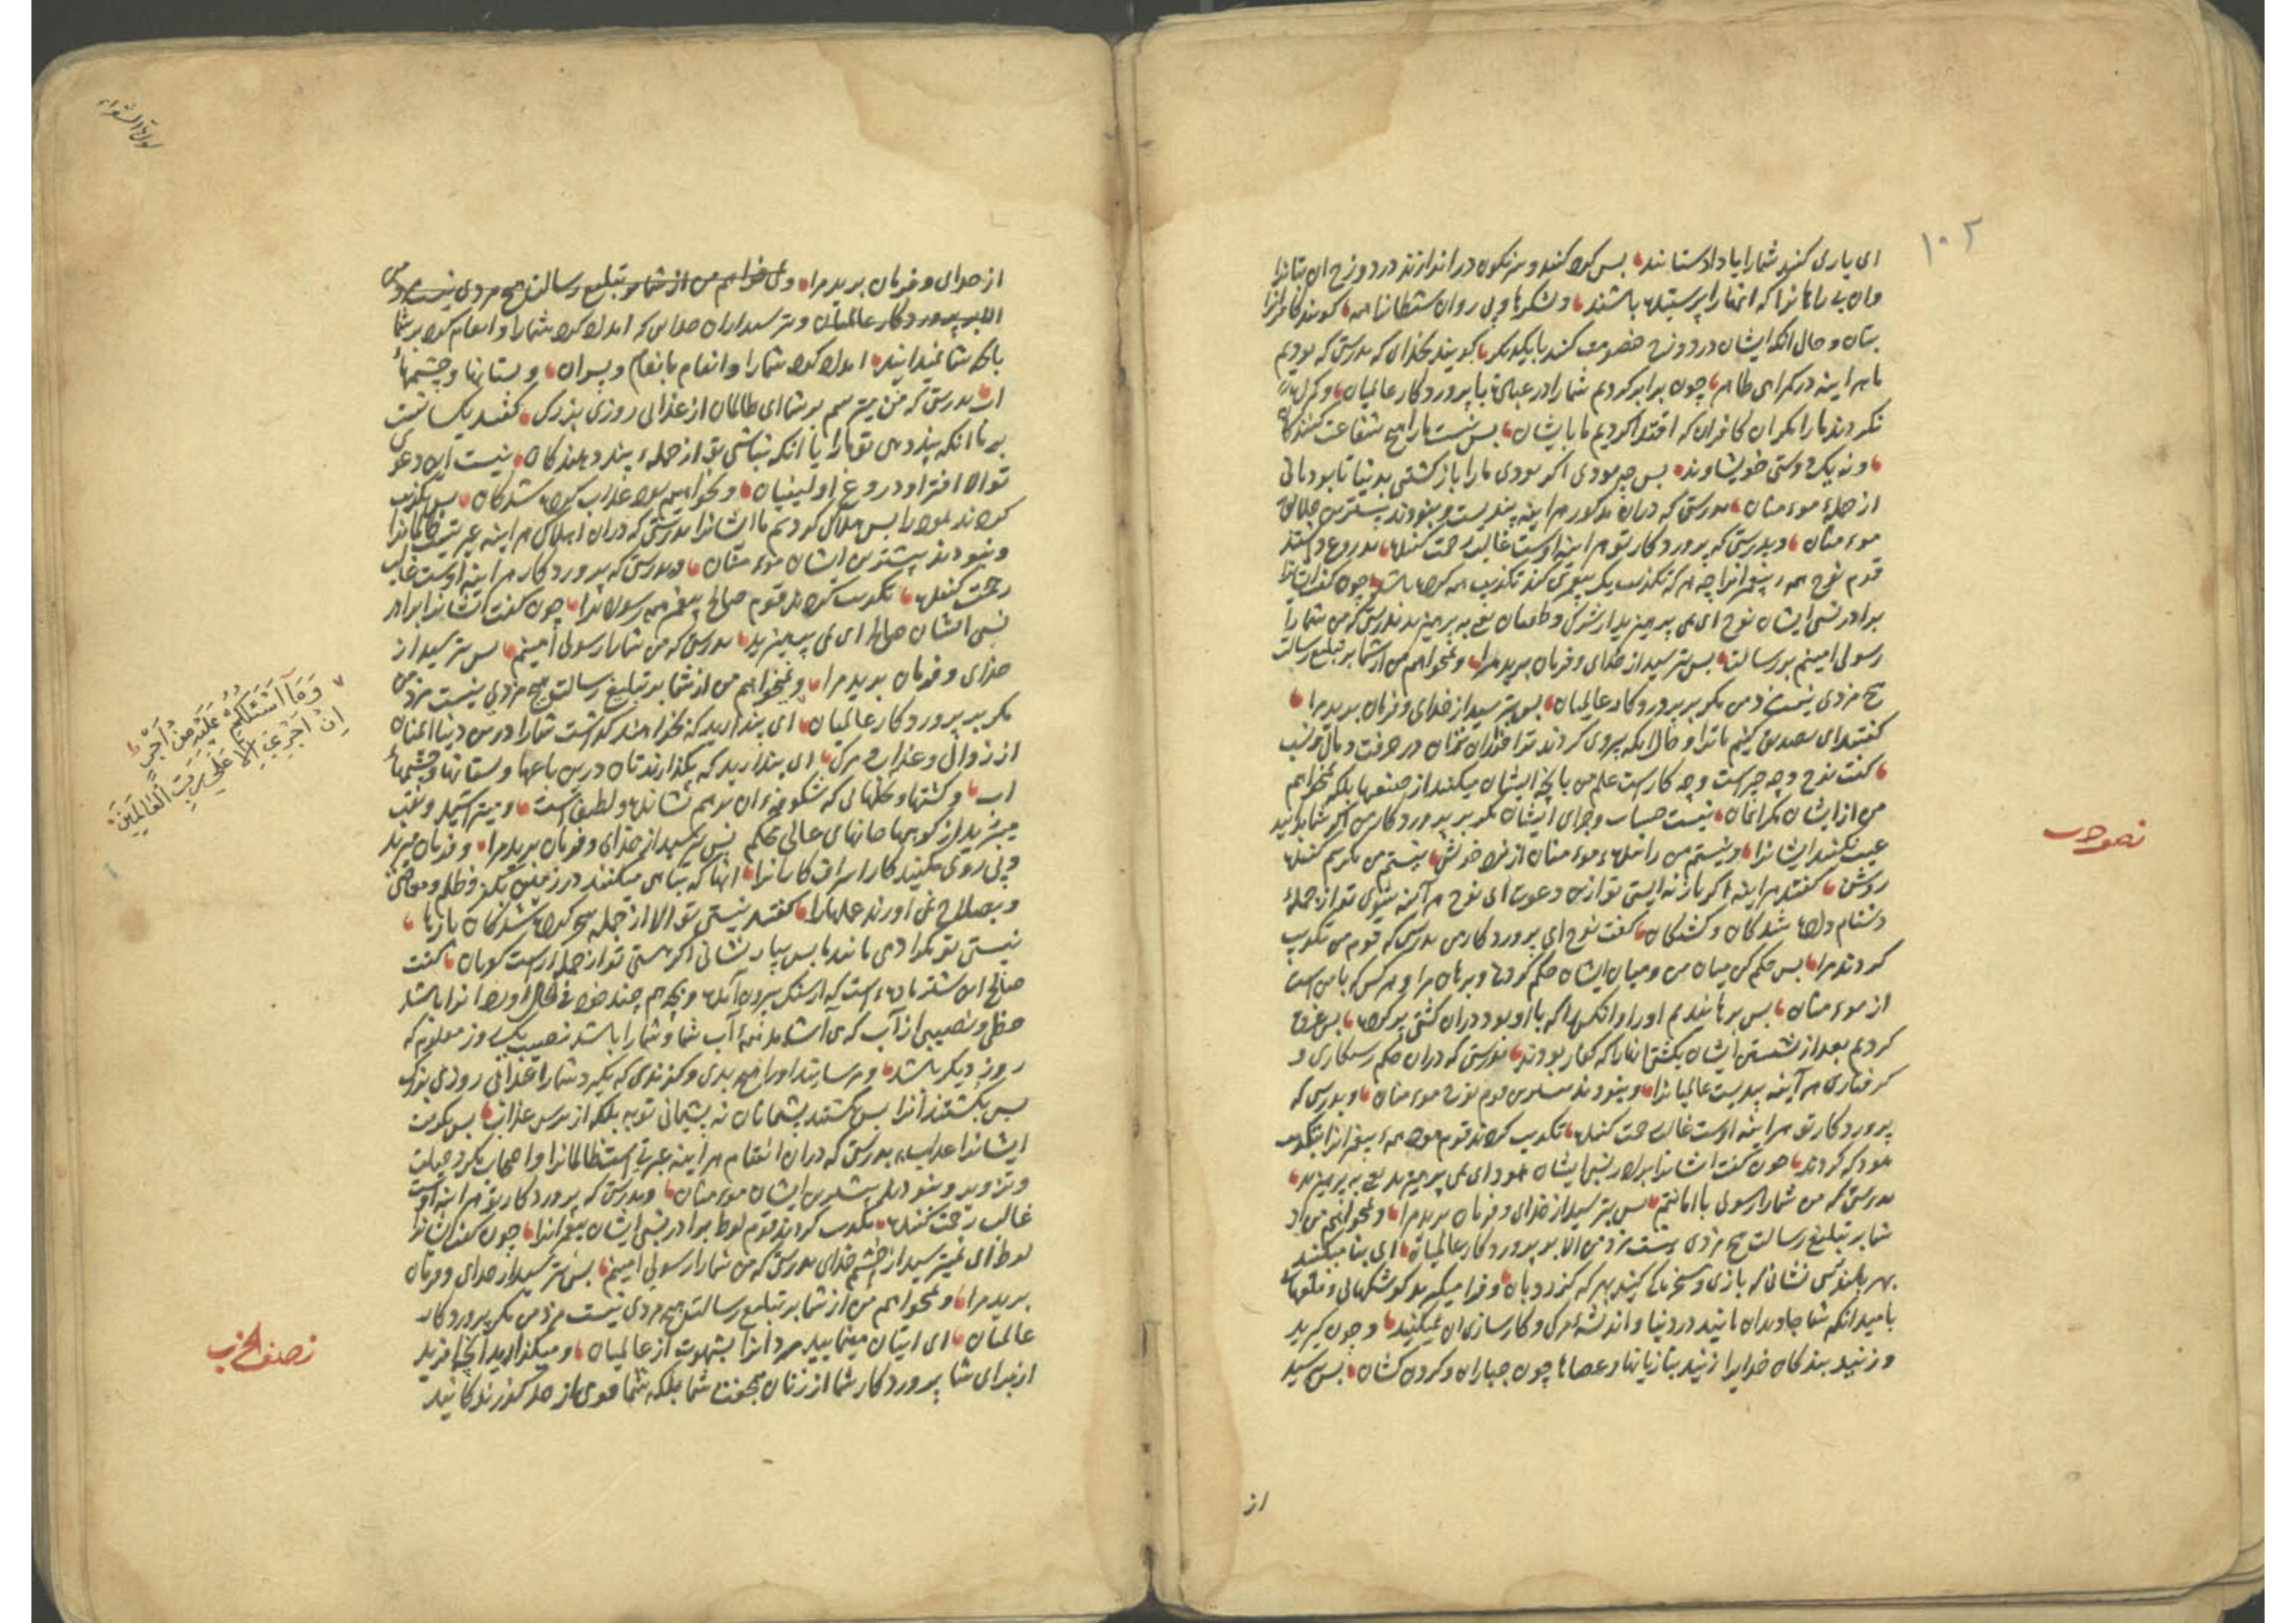 ۱۰۲
ای یاری کنند شما را یا داد ستانند بس کرده کنند و سرنکون در اندازند در دوزخ ان بتانرا
وان بی راهانرا که انها را پرستیده باشند و لشکرها و پی روان شیطانرا همه کویند کافرانرا
بتان و حال انکه ایشان در دوزخ خصومت کنند با یکدیکر کویند بخدای که بدرستی که بودیم
ما هر اینه در کمراهی ظاهر چون برابر کردیم شما را در عبادت با پروردکار عالمیان و کمراه
نکردند ما را مکر ان کافران که اقتدا کردیم ما بایشان بس نیست ما را هیچ شفاعت کننده
و نه یک دوستی خویشاوند بس چه بودی اکر بودی ما را باز کشتی بدنیا تا بودمانی
از جملهٔ موءمنان بدرستی که دران مذکور هر اینه پندیست و نبودند بیشترین
موءمنان و بدرستی که پروردکار تو هر اینه اوست غالب رحمت کننده بدروغ داشتند
قوم نوح همهء پیغمرانرا چه هر که تکذیب یک پیغمری کند تکذیب همه کرده باشد چون کفت ایشانرا
برادر نسبی ایشان نوح ای نمی پرهیزید از شرک و طغیان یعنی به پرهیزید بدرستی که من شما را
رسولی امینم بر رسالت بس بترسید از خدای و فرمان برید مرا و نمیخواهم من از شما بر تبلیغ رسالت
هیچ مزدی نیست مزد من مکر بر پروردکار عالمیان بس بترسید از خدای و فرمان برید مرا
کفتند ای تصدیق کنیم ما ترا و حال انکه پیروی کردند ترا فروتران در حرفت و مال و نسب
کفت نوح و چه چیز است و چه کار است علم من بانچه ایشان میکنند از صنعها بلکه نمیخواهم
من از ایشان مکر ایمان نیست حساب و جزای ایشان مکر بر پروردکار من اکر شما بدانید
عیب نکنید ایشانرا و نیستم من رانندهء موءمنان از نزد خویش نیستم من مکر بیم کننده
روشن کفتند هر اینه اکر باز نه ایستی تو ازین دعوت ای نوح هر آینه شوی تو از جملهٔ
دشنام داده شدکان و کشتکان کفت نوح ای پروردکار من بدرستی که قوم من تکذیب
کردند مرا بس حکم کن میان من و میان ایشان حکم کردنی و برهان مرا و هر کس که با من است
از موءمنان بس برهاندیم او را و انکس را که با او بود دران کشتی پر کرده بس غرق
کردیم بعد از نشستن ایشان بکشتی انها را که کفار بودند بدرستی که دران حکم رستکاری و
کرفتاری هر آینه پندیست عالمیانرا و نبودند بیشترین قوم نوح موءمنان و بدرستی که
پروردکار تو هر اینه اوست غالب رحمت کننده تکذیب کردند قوم هود همهء پیغمرانرا بتکذیب
هود که کردند چون کفت ایشانرا برادر نسبی ایشان هود ای نمی پرهیزید یعنی به پرهیزید
بدرستی که من شما را رسولی با امانتم بس بترسید از خدای و فرمان برید مرا و نمیخواهم من از
شما بر تبلیغ رسالت هیچ مزدی نیست مزد من الا بر پروردکار عالمیان ای بنا میکنید
بهر بلندی نشانی که بازی و سخریه کنید بهر که کذرد بان و فرا میکیرید کوشکهای و قلعها
بامید انکه شما جاویدان مانید در دنیا و اندیشهء مرک و کارسازی ان نمیکنید و چون کیرید
و زنید بندکان خدایرا زنید بتازیانها و عصاها چون جباران و کردن کشان بس بترسید
نصف حزب
از
سورة الشعراء
از خدای و فرمان برید مرا و نمیخواهم من از شما بر تبلیغ رسالت هیچ مزدی نیست مزد من
الا بر پروردکار عالمیان و بترسید ازان خدایی که امداد کرد شما را و انعام کرد بر شما
بانچه شما میدانید امداد کرد شما را و انعام بانعام و پسران و بستانها و چشمهاء
اب بدرستی که من میترسم بر شما ای ظالمان از عذابی روزی بزرک کفتند یکسانست
بر ما انکه پند دهی تو ما را یا انکه نباشی تو از جملهء پند دهندکان نیست این دعوی
تو الا افترا و دروغ اولینیان و نخواهیم بود عذاب کرده شدکان بس تکذیب
کردند هود را بس هلاک کردیم ما ایشانرا بدرستی که دران اهلاک هر اینه عبرتیست ظالمانرا
و نبودند بیشترین ایشان موءمنان و بدرستی که پروردکار هر اینه اوست غالب
رحمت کننده تکذیب کردند قوم صالح پیغمر همه رسولانرا چون کفت ایشانرا برادر
نسبی ایشان صالح ای نمی پرهیزید بدرستی که من شما را رسولی امینم بس بترسید از
خدای و فرمان برید مرا و نمیخواهم من از شما بر تبلیغ رسالت هیچ مزدی نیست مزد من
مکر بر پروردکار عالمیان ای پندارید که بخواهند کذاشت شما را درین دنیا ایمنان
از زوال و عذاب و مرک ای پندارید که بکذارندتان درین باغها و بستانها و چشمهاء
اب و کشتها و نخلهایی که شکوفهء ان نرم نشانده و لطیف است و میتراشید و نقب
میزنید از کوهها خانهای عالی محکم بس بترسید از خدای و فرمان برید مرا و فرمان مبرید
و پی روی مکنید کار اسراف کارانرا انها که تباهی میکنند در زمین بکفر و ظلم و معاصی
و بصلاح نمی آورند عملها را کفتند نیستی تو الا از جمله سحر کرده شدکان بارها
نیستی تو مکر ادمی مانند ما بس بیار نشانی اکر هستی تو از جمله راست کویان کفت
صالح این شتر مادهء است که از سنک بیرون آمده و بچه هم چند خود فی الحال آورد انرا باشد
حظی و نصیبی از آب که می آشامد نیمهٔ آب شما و شما را باشد نصیب یک روز معلوم که
روز دیکر باشد و مرسانید او را هیچ بدی و کزندی که بکیرد شما را عذابی روزی بزرک
بس بکشتند انرا بس کشتند پشیمانان نه پشیمانی توبه بلکه از ترس عذاب بس بکرفت
ایشانرا عذاب بدرستی که دران انتقام هر اینه عبرتی است ظالمانرا و اصحاب مکر و حیلت
و تزویر و نبودند بیشترین ایشان موءمنان و بدرستی که پروردکار تو هر اینه اوست
غالب رحمت کننده تکذیب کردند قوم لوط برادر نسبی ایشان پیغمرانرا چون کفت ایشانرا
لوط ای نمیترسید از خشم خدای بدرستی که من شما را رسولی امینم بس بترسید از خدای و فرمان
برید مرا و نمیخواهم من از شما بر تبلیغ رسالت هیچ مزدی نیست مزد من مکر پروردکار
عالمیان ای اتیان مینمایید مردانرا بشهوت از عالمیان و میکذارید انچه آفرید
از برای شما پروردکار شما از زنان بجفت شما بلکه شما قومی از حد کذرندکانید
وَمَآ اَسْئَلُكُمْ عَلَيْهِ مِنْ اَجْرٍ
اِنْ اَجْرِيَ اِلَّا عَلَى رَبِّ الْعَالَمِينَ
نصف الحزب